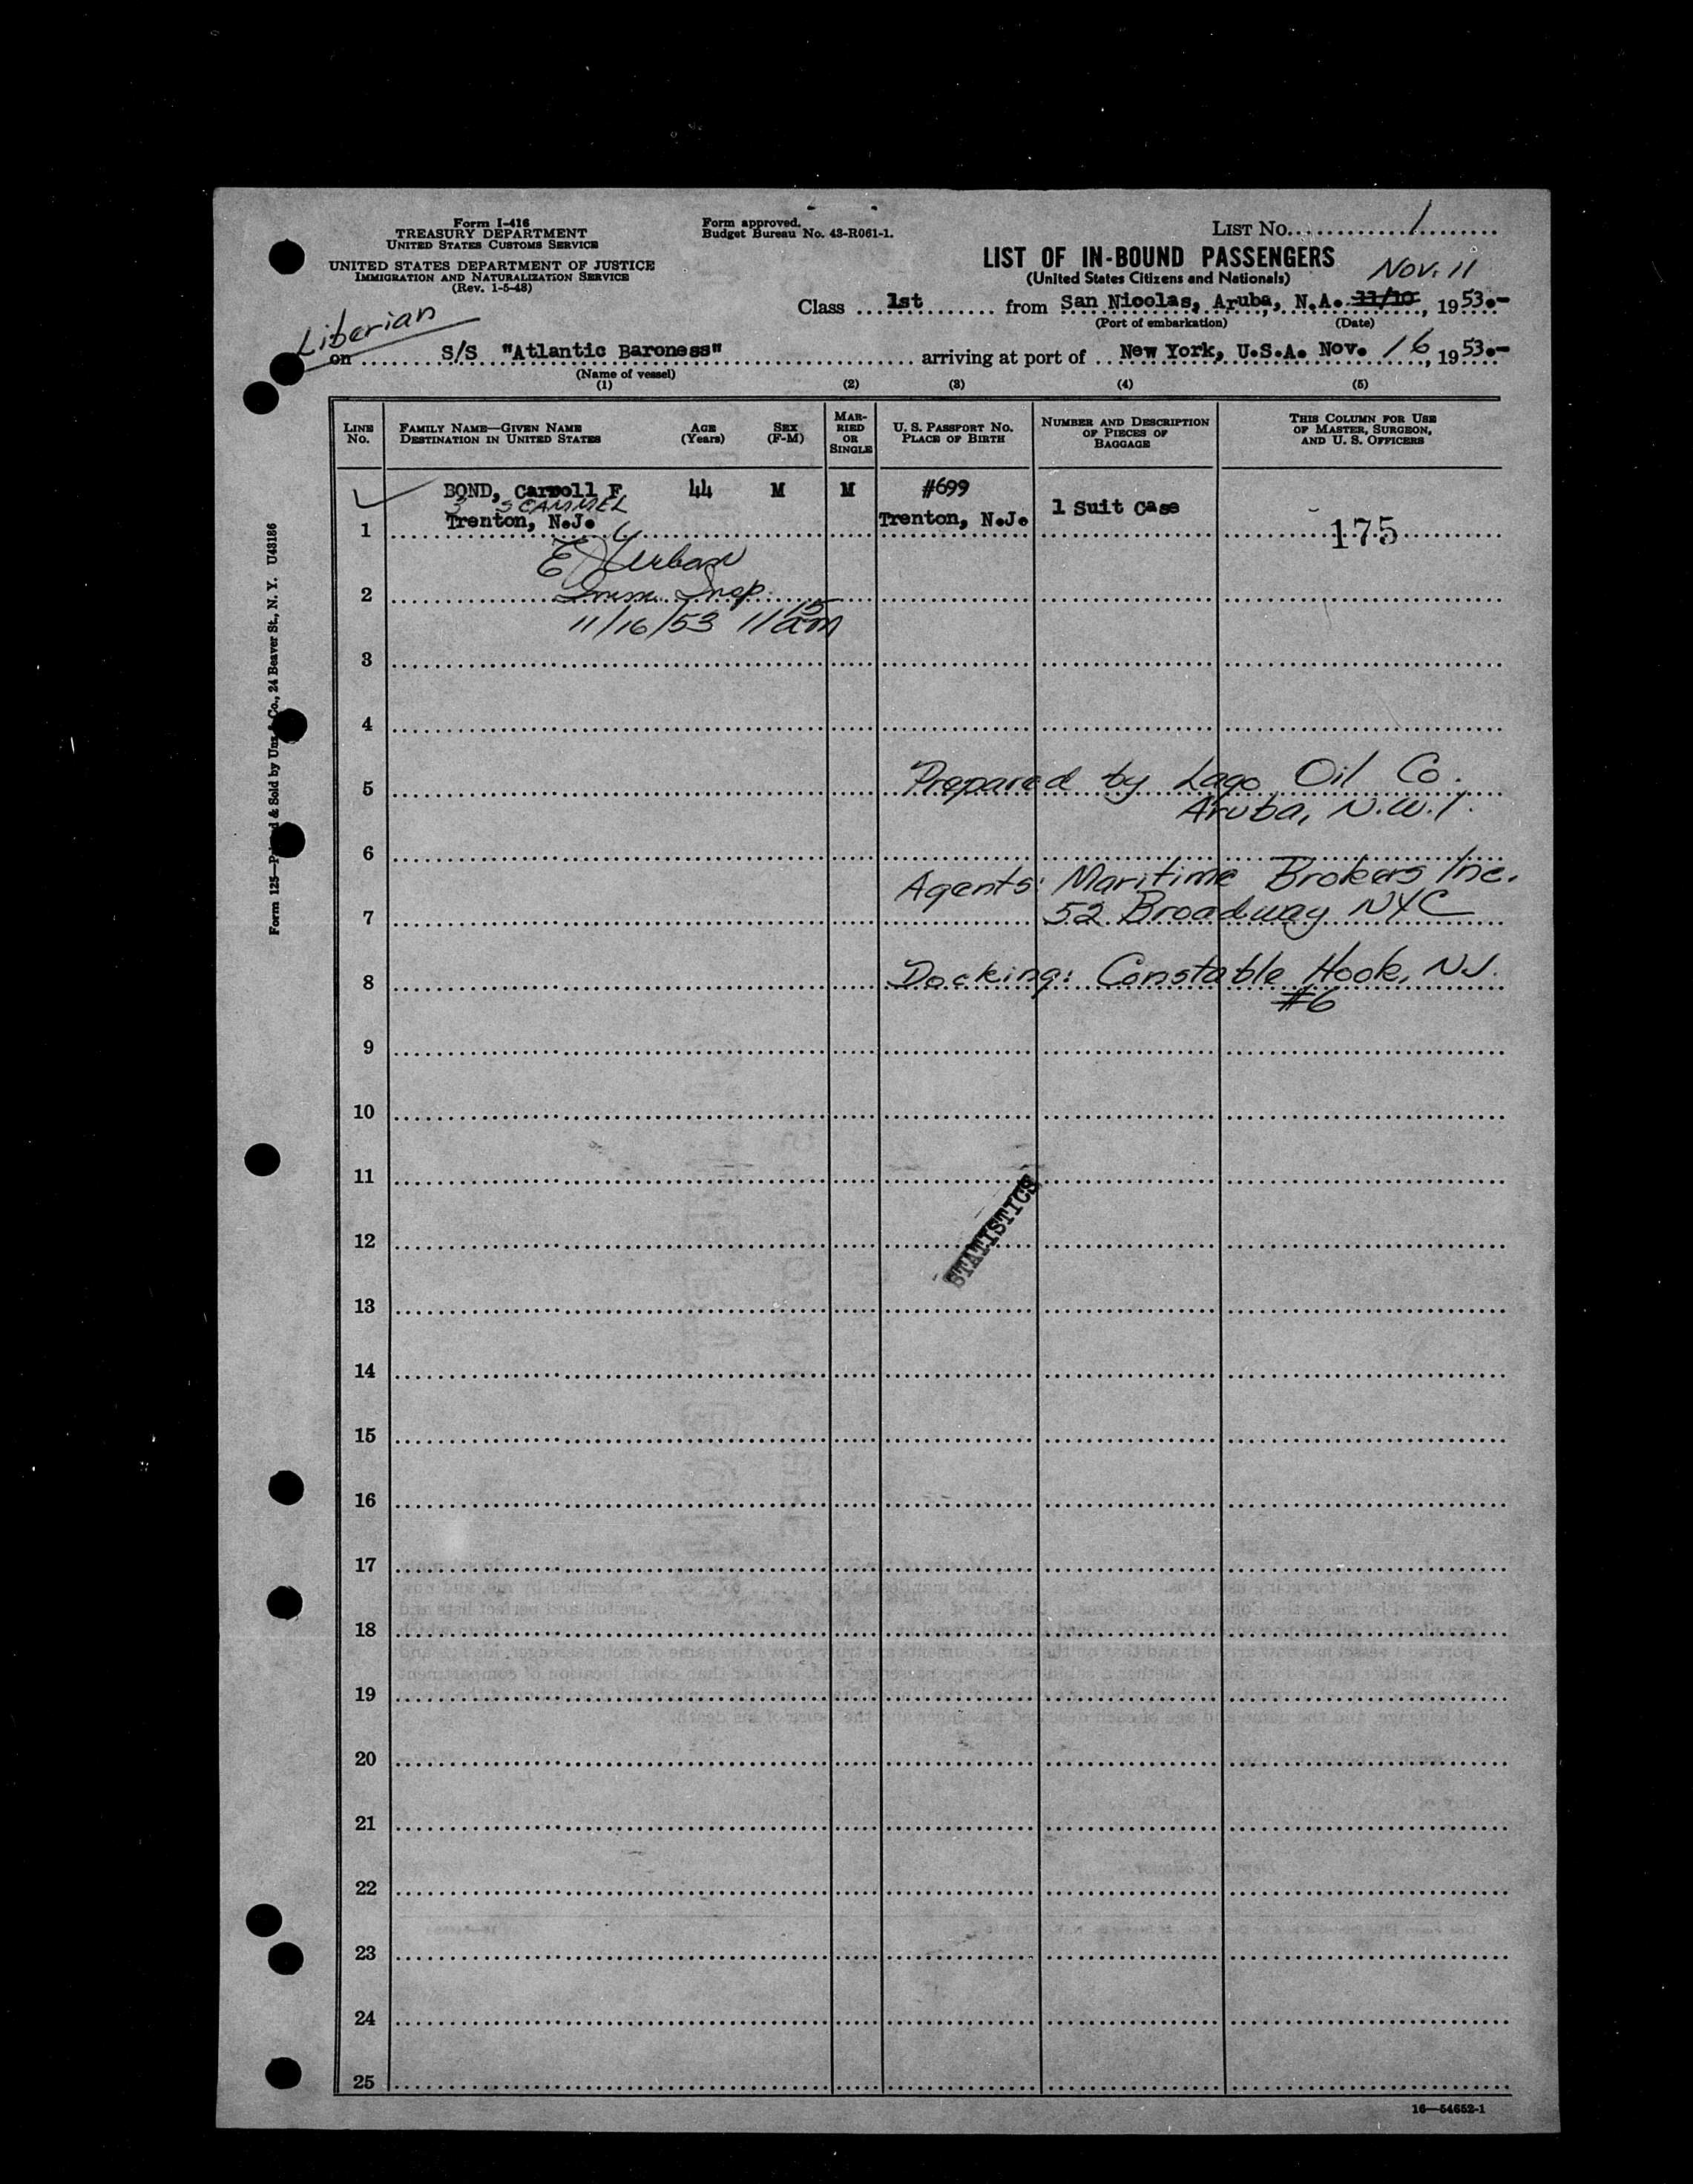 Form I-416
TREASURY DEPARTMENT
UNITED STATES CUSTOMS SERVICE
UNITED STATES DEPARTMENT OF JUSTICE
IMMIGRATION AND NATURALIZATION SERVICE
(Rev. 1-5-48)
Form approved.
Budget Bureau No. 43-R061-1.
LIST NO. 1
LIST OF IN-BOUND PASSENGERS
(United States Citizens and Nationals)
Nov. 11
Class 1st from San Nicolas, Aruba, N.A. 11/10, 1953.-
(Port of embarkation) (Date)
Liberian
on S/S "Atlantic Baroness" arriving at port of New York, U.S.A. Nov. 16, 1953.-
(Name of vessel)
(1) (2) (3) (4) (5)
LINE NO.
FAMILY NAME—GIVEN NAME
DESTINATION IN UNITED STATES
AGE (Years)
SEX (F-M)
MARRIED OR SINGLE
U. S. PASSPORT NO.
PLACE OF BIRTH
NUMBER AND DESCRIPTION OF PIECES OF BAGGAGE
THIS COLUMN FOR USE OF MASTER, SURGEON, AND U. S. OFFICERS
BOND, Carroll F 44 M M #699
3 SCAMMEL
1 Trenton, N.J. Trenton, N.J. 1 Suit Case 175
Urban
2 Imm. Insp.
11/16/53 11 15 am
3
4
5 Prepared by Lago Oil Co.
Aruba, N.W.I.
6
Agents: Maritime Brokers Inc.
7 52 Broadway NYC
8 Docking: Constable Hook, NJ.
#6
9
10
11
STATISTICS
12
13
14
15
16
17
18
19
20
21
22
23
24
25
16—54652-1
Form 125—Printed & Sold by Unz & Co., 24 Beaver St., N. Y. U43186